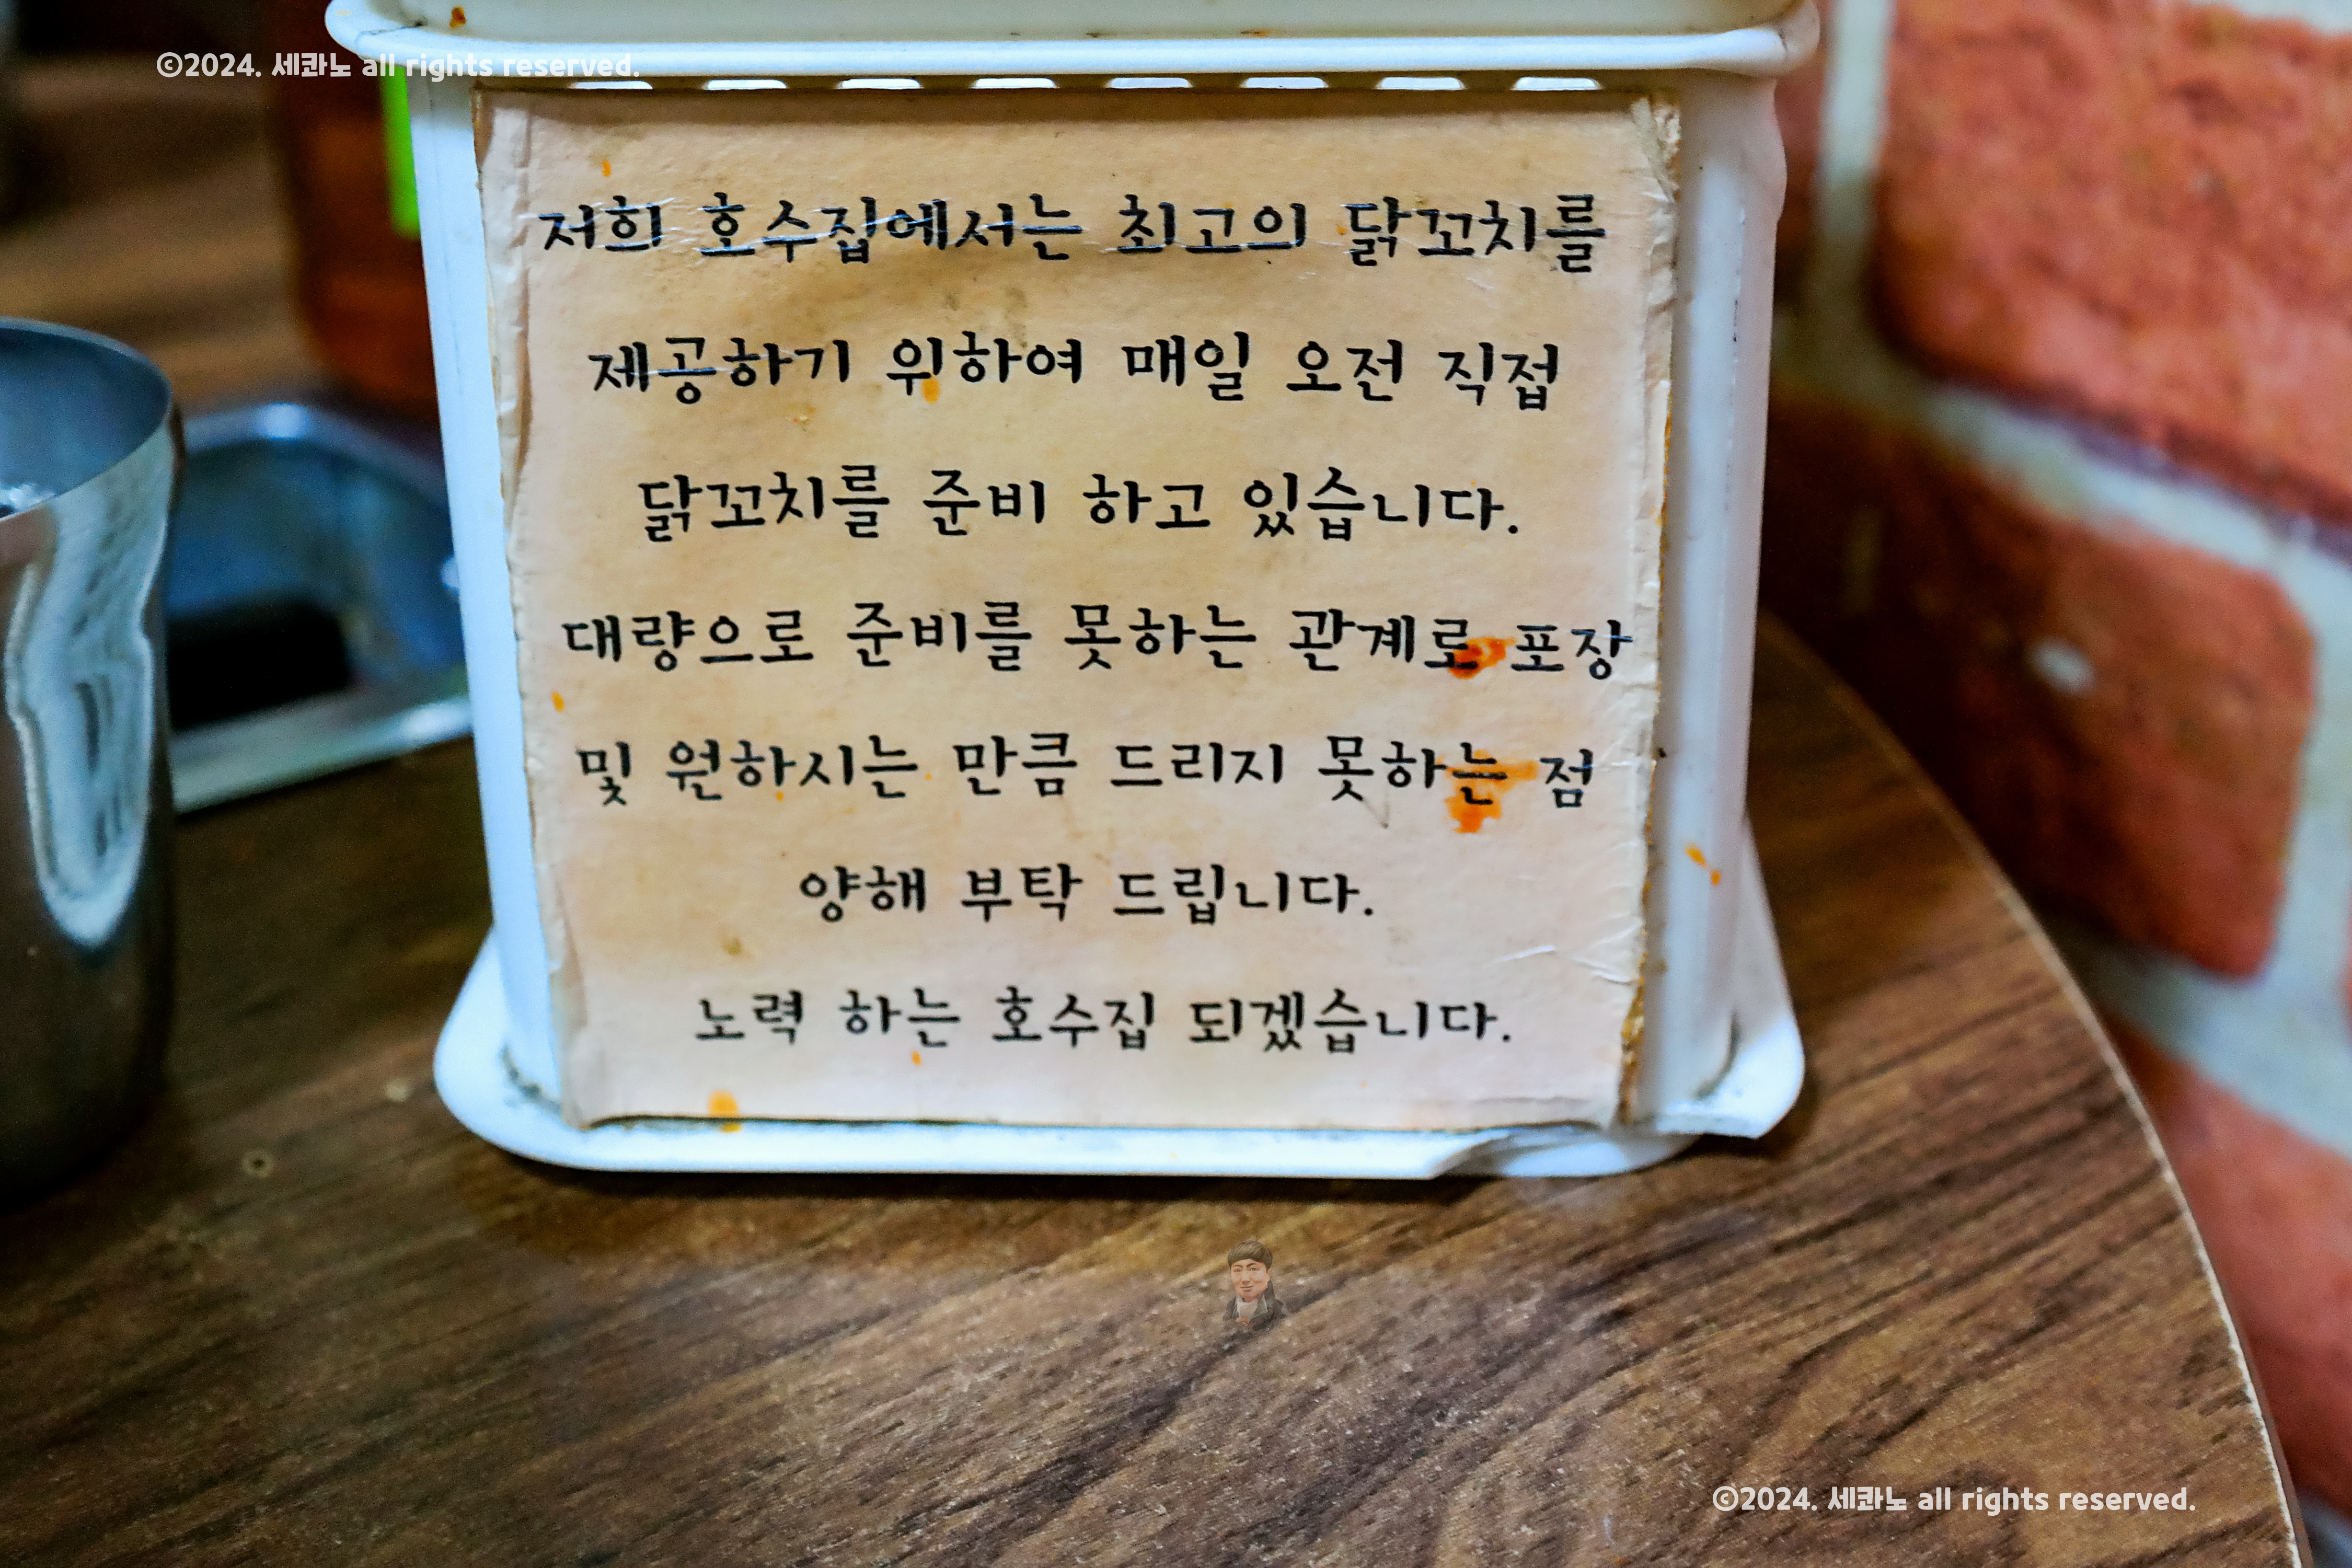 ©2024. 세콰노 all rights reserved.
저희 호수집에서는 최고의 닭꼬치를
제공하기 위하여 매일 오전 직접
닭꼬치를 준비 하고 있습니다.
대량으로 준비를 못하는 관계로 포장
및 원하시는 만큼 드리지 못하는 점
양해 부탁 드립니다.
노력 하는 호수집 되겠습니다.
©2024. 세콰노 all rights reserved.